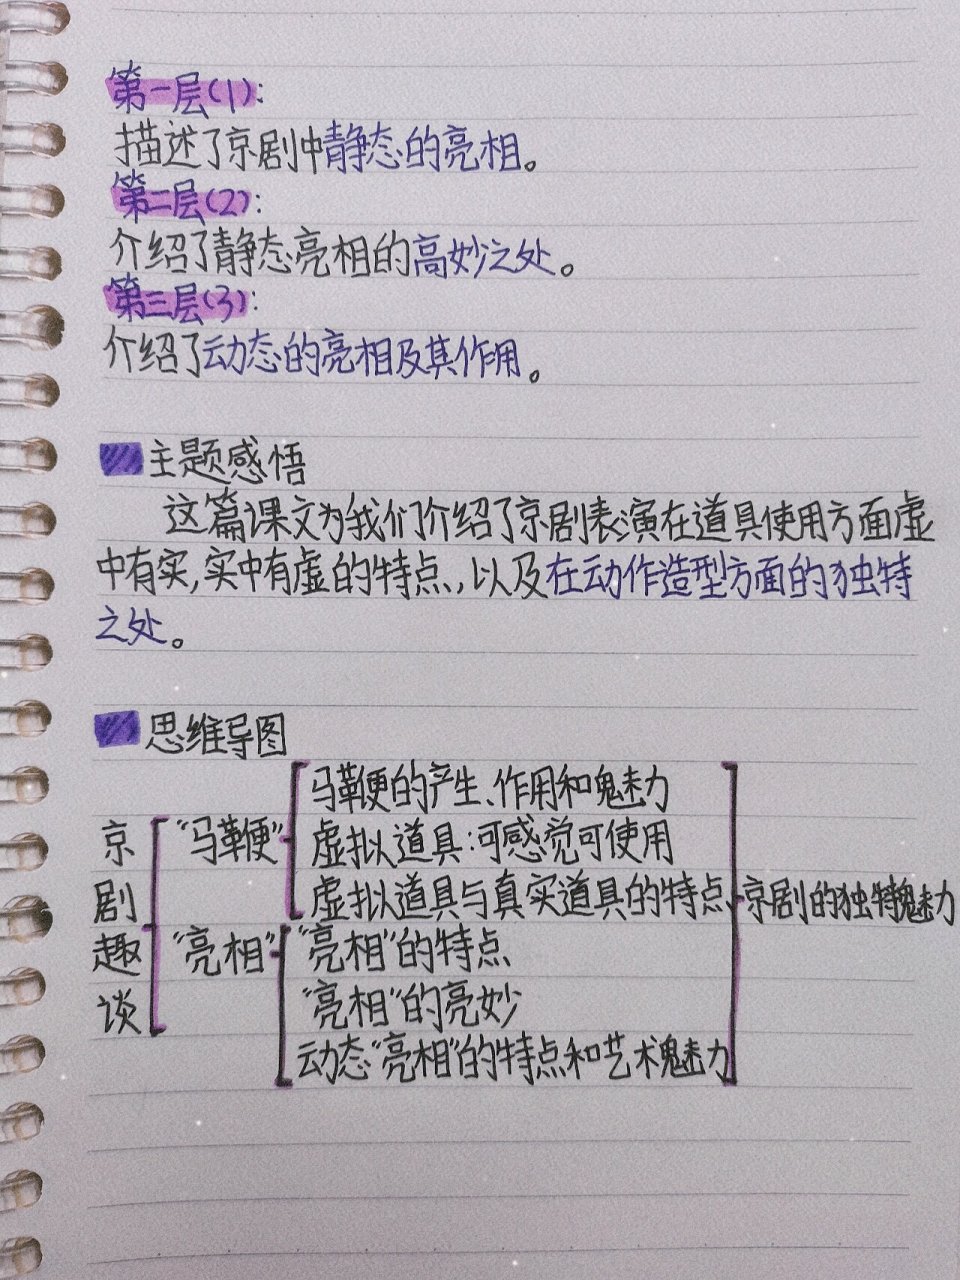 第一层(1):
描述了京剧中静态的亮相。
第二层(2):
介绍了静态亮相的高妙之处。
第三层(3):
介绍了动态的亮相及其作用。
主题感悟
这篇课文为我们介绍了京剧表演在道具使用方面虚
中有实,实中有虚的特点,以及在动作造型方面的独特
之处。
思维导图
京剧趣谈
"马鞭"
马鞭的产生、作用和魅力
虚拟道具:可感觉可使用
虚拟道具与真实道具的特点
"亮相"
"亮相"的特点
"亮相"的亮妙
动态"亮相"的特点和艺术魅力
京剧的独特魅力